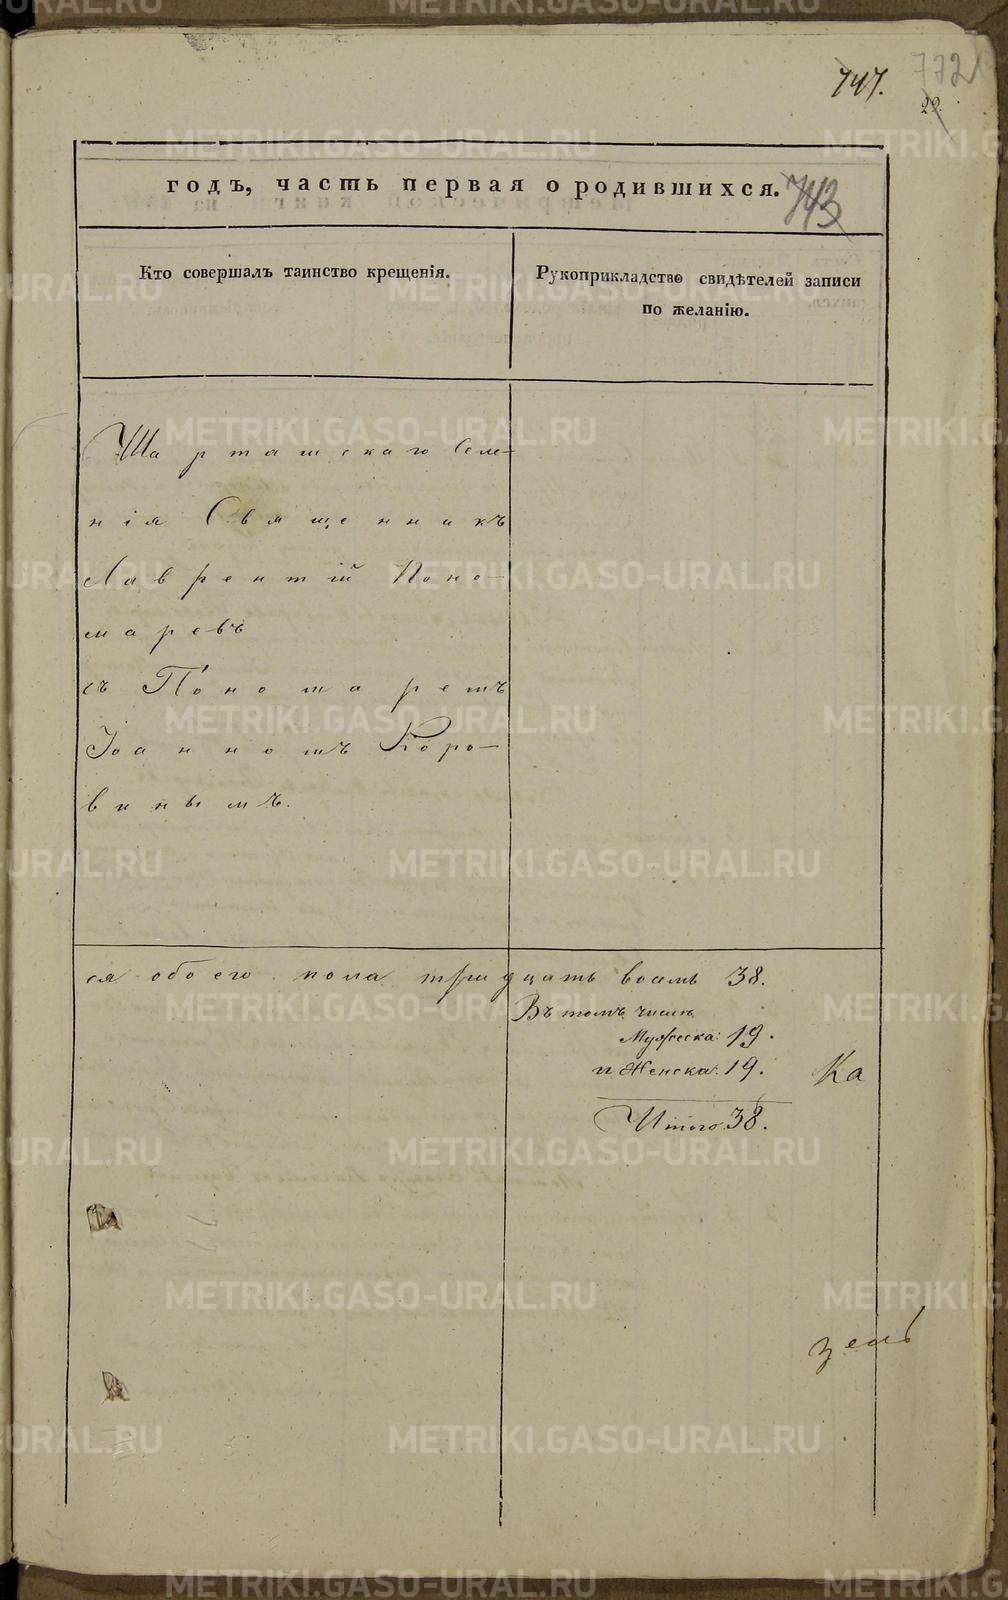 747.
772
22.
годъ, часть первая о родившихся.
743
Кто совершалъ таинство крещенія.
Рукоприкладство свидѣтелей записи
по желанію.
Шарташскаго Селе-
нія Священникъ
Лаврентій Поно-
маревъ
съ Пономаремъ
Іоанномъ Коро-
винымъ.
ся обоего пола тридцать восемь 38.
Въ томъ числѣ
Мужеска: 19.
и Женска: 19.
Итого 38.
Ка
METRIKI.GASO-URAL.RU